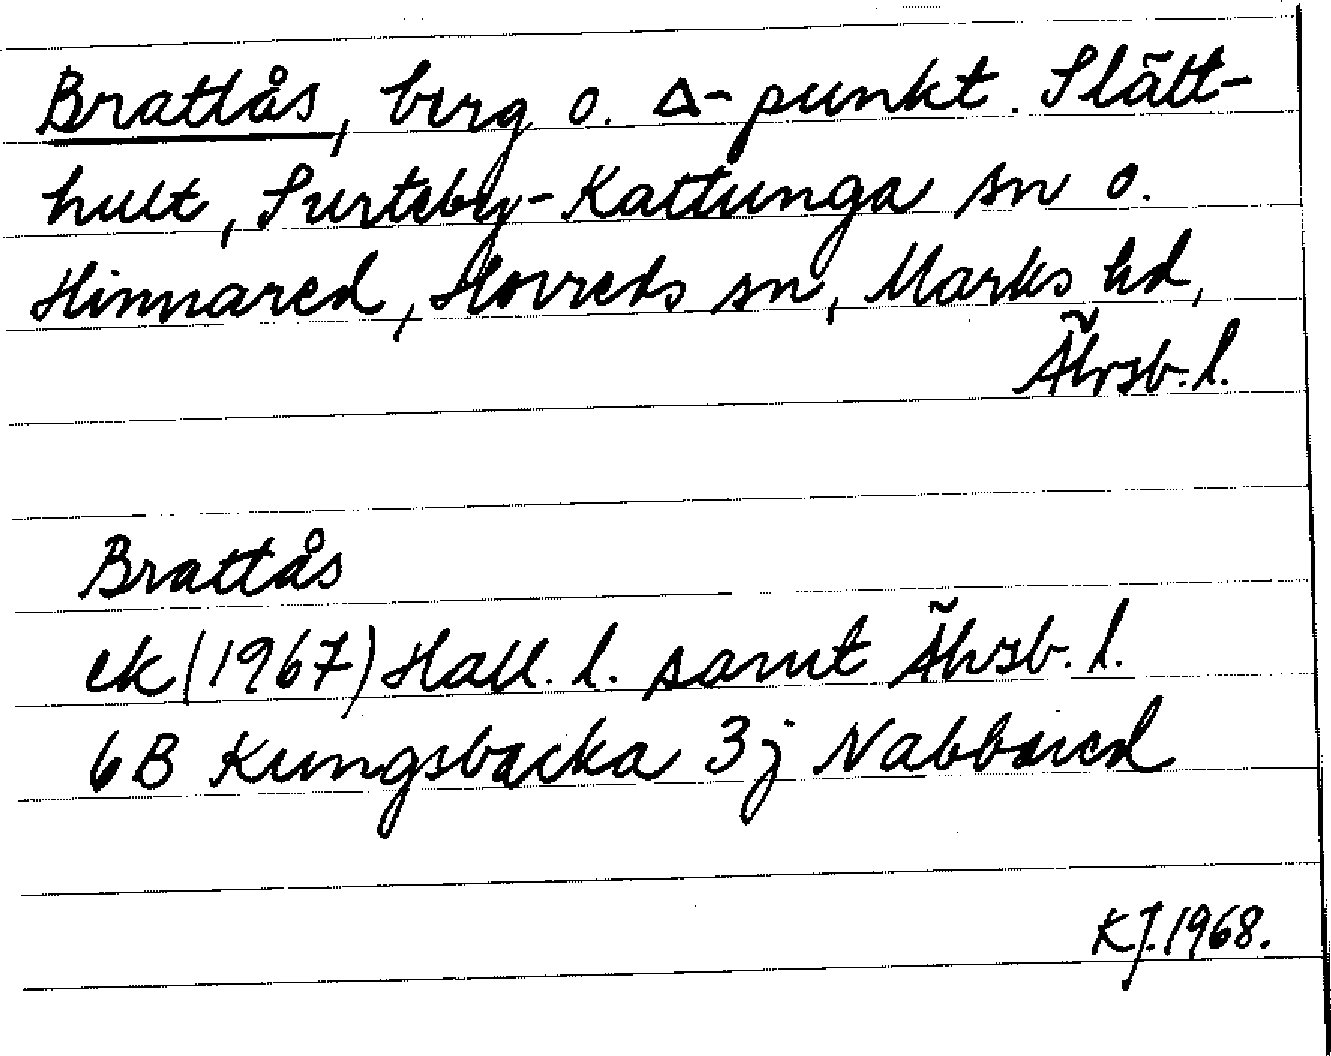 Brattås, berg o. △-punkt. Slätt-
hult, Surteby-Kattunga sn o.
Hinnared, Horreds sn, Marks hd,
Älvsb. l.
Brattås
ek (1967) Hall. l. samt Älvsb. l.
6B Kungsbacka 3j Nabbared
KJ. 1968.